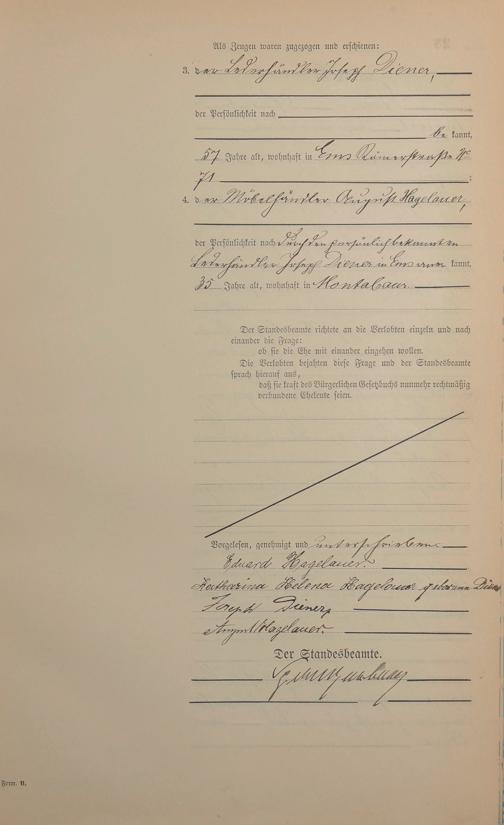 Als Zeugen waren zugezogen und erschienen:
3. der Lederhändler Joseph Diener,
der Persönlichkeit nach
be kannt,
57 Jahre alt, wohnhaft in Ems Römerstraße No
71 ;
4. der Möbelhändler August Hagelauer,
der Persönlichkeit nach durch den persönlich bekannten
Lederhändler Joseph Diener in Ems aner kannt,
35 Jahre alt, wohnhaft in Montabaur
Der Standesbeamte richtete an die Verlobten einzeln und nach
einander die Frage:
ob sie die Ehe mit einander eingehen wollen.
Die Verlobten bejahten diese Frage und der Standesbeamte
sprach hierauf aus,
daß sie kraft des Bürgerlichen Gesetzbuchs nunmehr rechtmäßig
verbundene Eheleute seien.
Vorgelesen, genehmigt und unterschrieben.
Eduard Hagelauer.
Katharina Helena Hagelauer geborene Diener
Joseph Diener
August Hagelauer.
Der Standesbeamte.
Form. B.